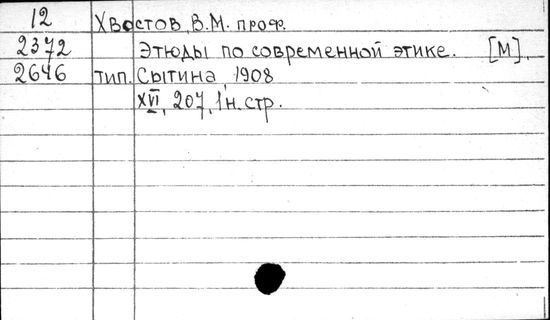 12 Хвостов, В.М. проф.
2372 Этюды по современной этике. [М],
2646 тип. Сытина, 1908
XVI, 207, 1 н. стр.